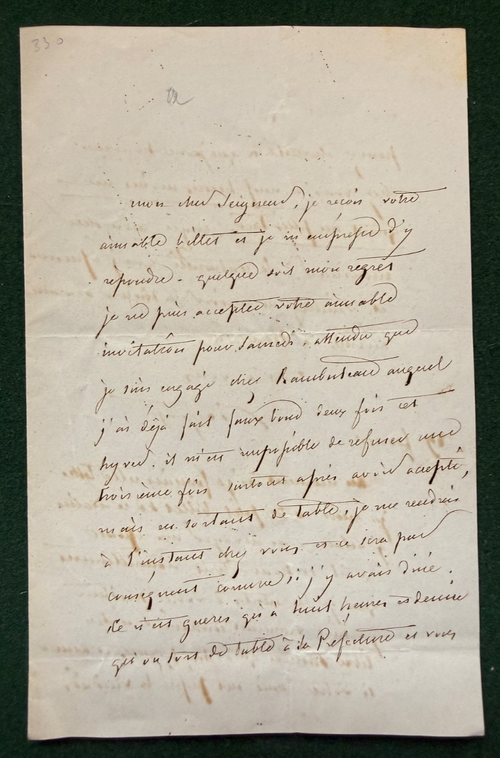 330
mon cher Seigneur, je reçois votre
aimable billet et je m'empresse d'y
repondre. quelque soit mon regret
je ne puis accepter votre aimable
invitation pour Samedi, attendu que
je suis engagé chez Rambuteau auquel
j'ai déjà fait faux bond deux fois cet
hyver. il m'est impossible de refuser une
troisième fois surtout après avoir accepté,
mais en sortant de table, je me rendrai
à l'instant chez vous et ce sera par
conséquent comme si j'y avais diné.
Ce n'est gueres qu'à huit heures et demie
qu'on sort de table à la Préfecture et vous